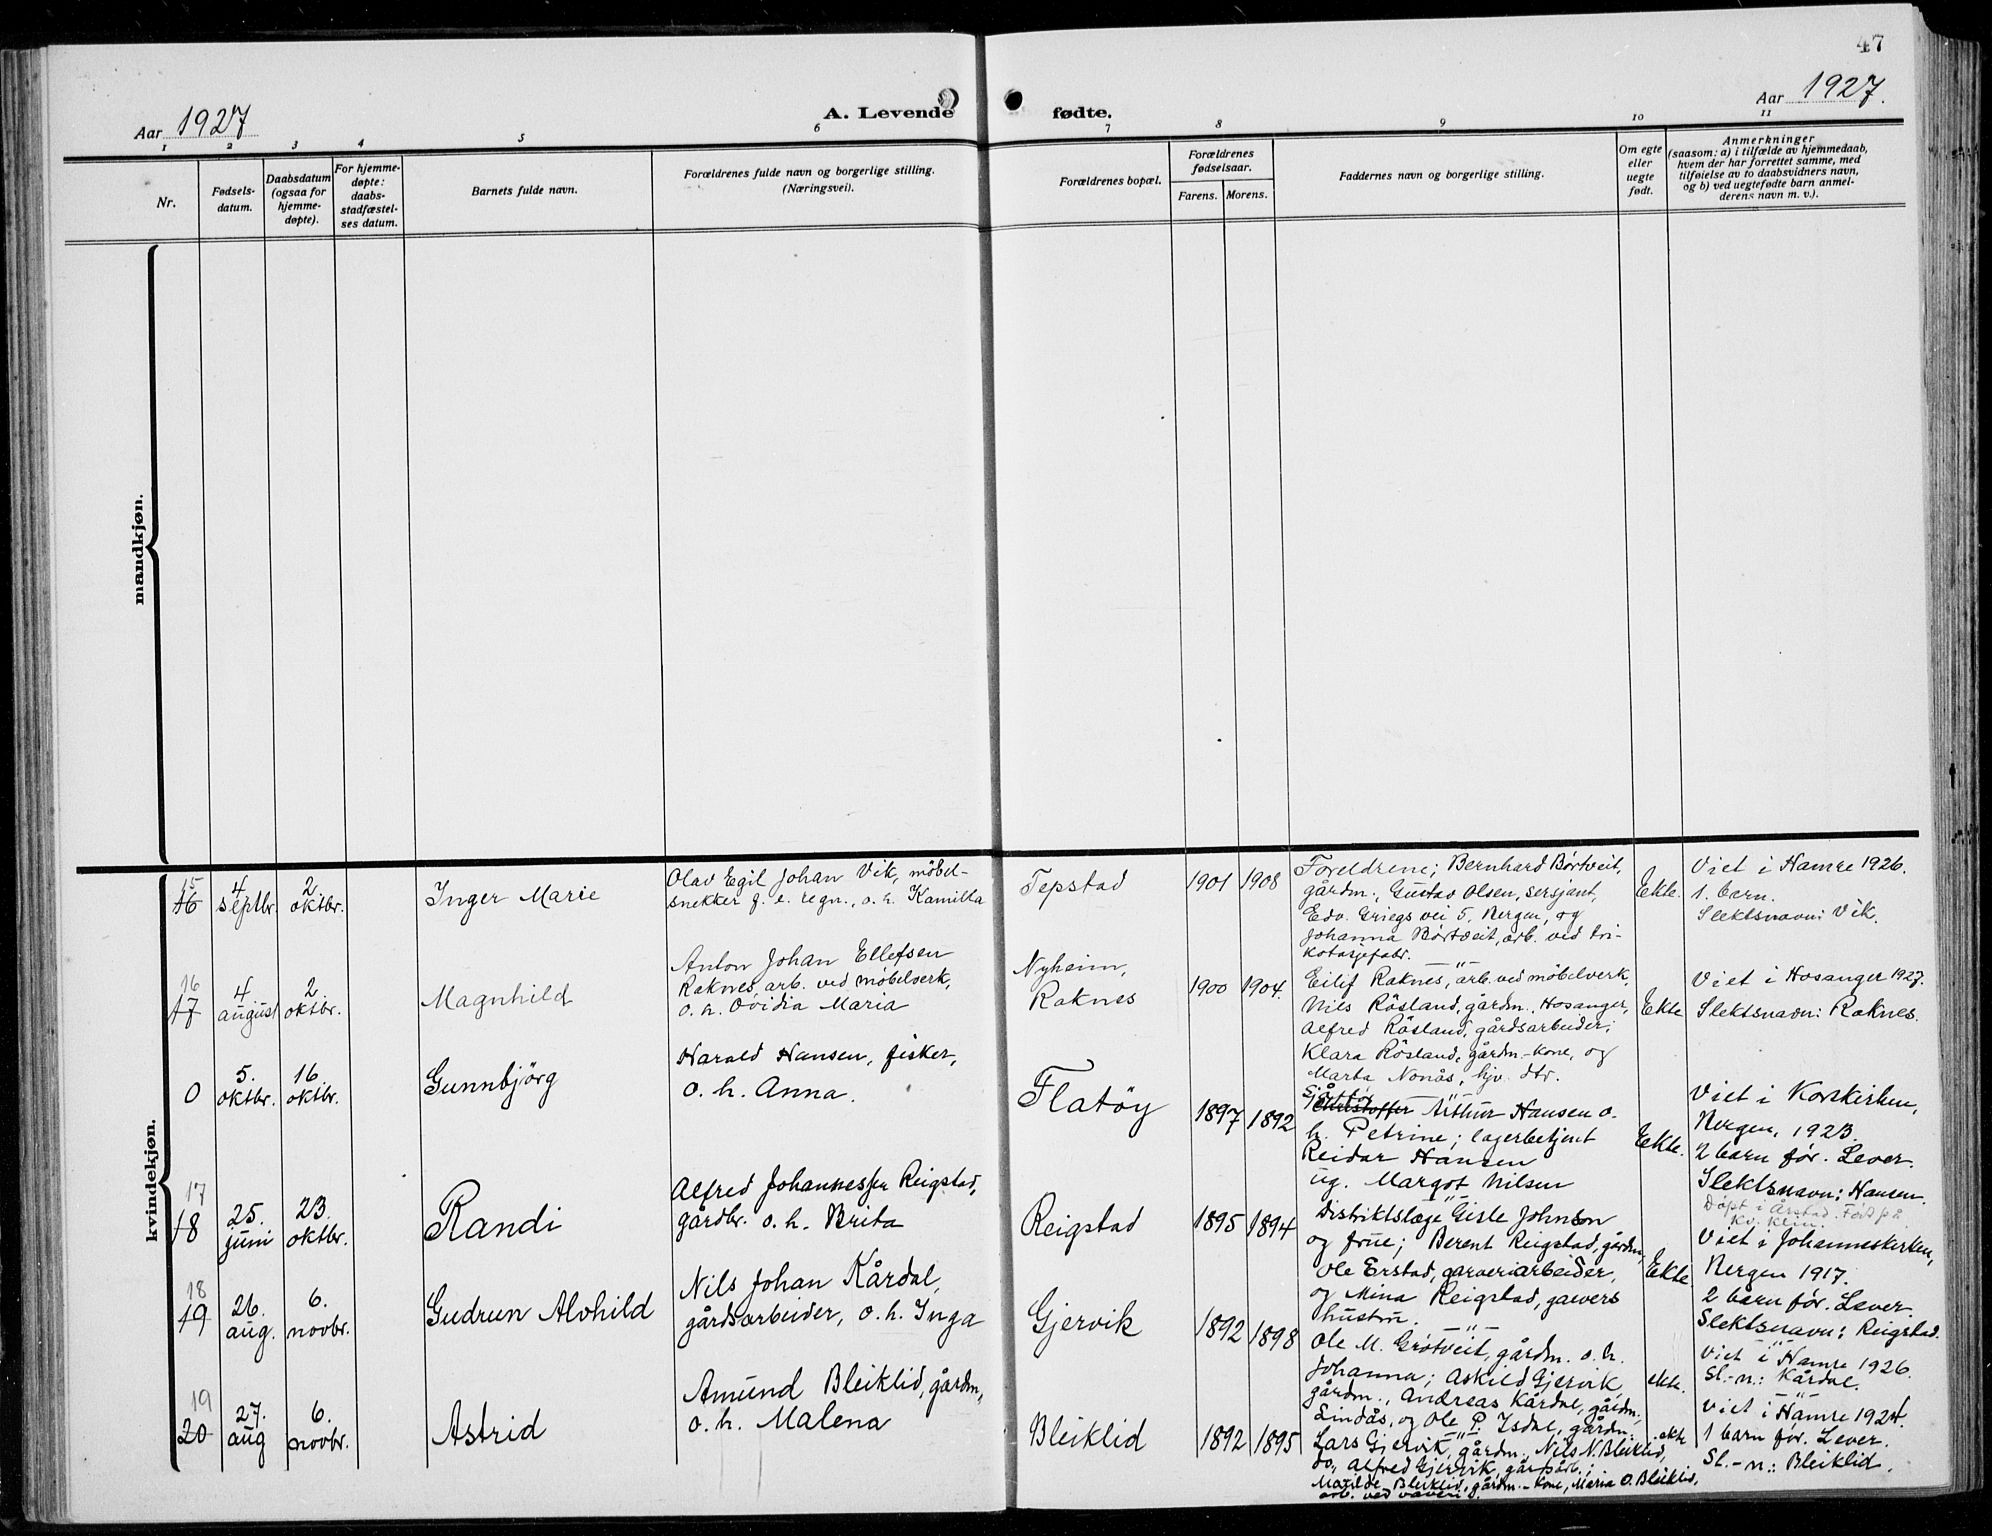 47
Aar 1927
A. Levende fødte.
Aar 1927.
1 2 3 4 5 6 7 8 9 10 11
Nr.
Fødsels-
datum.
Daabsdatum
(ogsaa for
hjemme-
døpte).
For hjemme-
døpte:
daabs-
stadfæstel-
ses datum.
Barnets fulde navn.
Forældrenes fulde navn og borgerlige stilling.
(Næringsvei).
Forældrenes bopæl.
Forældrenes
fødselsaar.
Farens. Morens.
Faddernes navn og borgerlige stilling.
Om egte
eller
uegte
født.
Anmerkninger
(saasom: a) i tilfælde av hjemmedaab,
hvem der har forrettet samme, med
tilføielse av to daabsvidners navn,
og b) ved uegtefødte barn anmel-
derens navn m. v.).
mandkjøn.
kvindekjøn.
15
16
4
septbr.
2.
oktbr.
Inger Marie
Olav Egil Johan Vik, möbel-
snekker f. e. regn., o. h. Kamilla
Tepstad
1901 1908
Foreldrene; Bernhard Börtveit,
gårdm., Gustav Olsen, sersjant,
Edv. Griegs vei 5, Bergen, og
Johanna Börtveit, arb. ved tri-
kotasjefabr.
Ekte.
Viet i Hamre 1926.
1. barn.
Slektsnavn: Vik.
16
17
4
august
2.
oktbr.
Magnhild
Anton Johan Ellefsen
Raknes, arb. ved möbelverk,
o. h. Ovidia Maria
Nyheim,
Raknes
1900 1904.
Eilif Raknes, arb. ved möbelverk,
Nils Rösland, gårdm., Hosanger,
Alfred Rösland, gårdsarbeider;
Klara Rösland, gårdm.-kone, og
Marta Nonås, hjv. dtr.
Ekte
Viet i Hosanger 1927.
Slektsnavn: Raknes.
0
5.
oktbr.
16.
oktbr.
Gunnbjörg
Harald Hansen, fisker,
o. h. Anna.
Flatöy
1897 1892
Arthur Hansen o.
h. Petrine; lagerbetjent
Reidar Hansen
ug. Margot Nilsen
Ekte.
Viet i Korskirken,
Bergen, 1923.
2 barn för. Lever.
Slektsnavn: Hansen.
Döpt i Årstad. Fört på
Kv. klin.
17
18
25.
juni
23.
oktbr.
Randi
Alfred Johannessen Reigstad,
gårdbr. o. h. Brita
Reigstad
1895 1894
Distriktslæge Gisle Johnson
og frue; Berent Reigstad, gårdm,
Ole Erstad, garveriarbeider,
og Mina Reigstad, garvers
hustru.
Ekte
Viet i Johanneskirken,
Bergen 1917.
2 barn för. Lever.
Slektsnavn: Reigstad.
18
19
26.
aug.
6.
novbr.
Gudrun Alvhild
Nils Johan Kårdal,
gårdsarbeider, o. h. Inga
Gjervik
1892 1898
Ole M. Grötveit, gårdm. o. h.
Johanna; Askild Gjervik,
gårdm., Andreas Kårdal, gårdm,
Lindås, og Ole P. Isdal, gårdm.
ekte.
Viet i Hamre 1926.
Sl.-n.: Kårdal.
19
20
27.
aug
6.
novbr.
Astrid
Amund Bleiklid, gårdm,
o. h. Malena
Bleiklid
1892 1895
Lars Gjervik, gårdm., Nils N. Bleiklid,
do., Alfred Gjervik, gårdsarb.;
Matilde Bleiklid, gårdm.-kone, Maria O. Bleiklid,
arb. ved væveri.
ekte
Viet i Hamre 1924.
1 barn för. Lever.
Sl.-n.: Bleiklid.